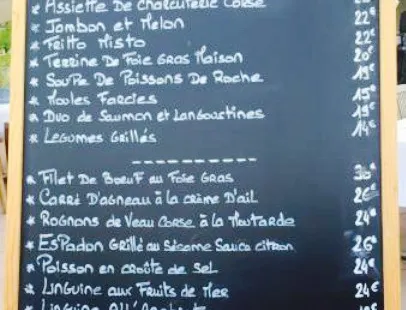 * Assiette De Charcuterie Corse
* Jambon et Melon 22€
* Fritto Misto 22€
* Terrine De Foie Gras Maison 20€
* Soupe De Poissons De Roche 19€
* Moules Farcies 15€
* Duo de Saumon et Langoustines 19€
* Legumes Grillés 14€
* Filet De Boeuf au Foie Gras 36€
* Carré D'agneau à la crème D'ail 26€
* Rognons de Veau Corse à la Moutarde 24€
* Espadon Grillé au Sésame Sauce citron 26€
* Poisson en croûte de sel 24€
* Linguine aux Fruits de Mer 24€
* Linguine